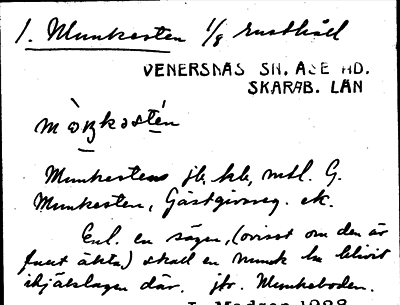 1. Munkesten 1/8 rusthåll
VENERSNÄS SN. ÅSE HD.
SKARAB. LÄN
Munkestens jb, kb, mtl. G.
Munkesten, Gästgivareg. ek.
Enl. en sägen, (ovisst om den är
funt äkta) skall en munk ha blivit
ihjälslagen där. jfr. Munkeboden.